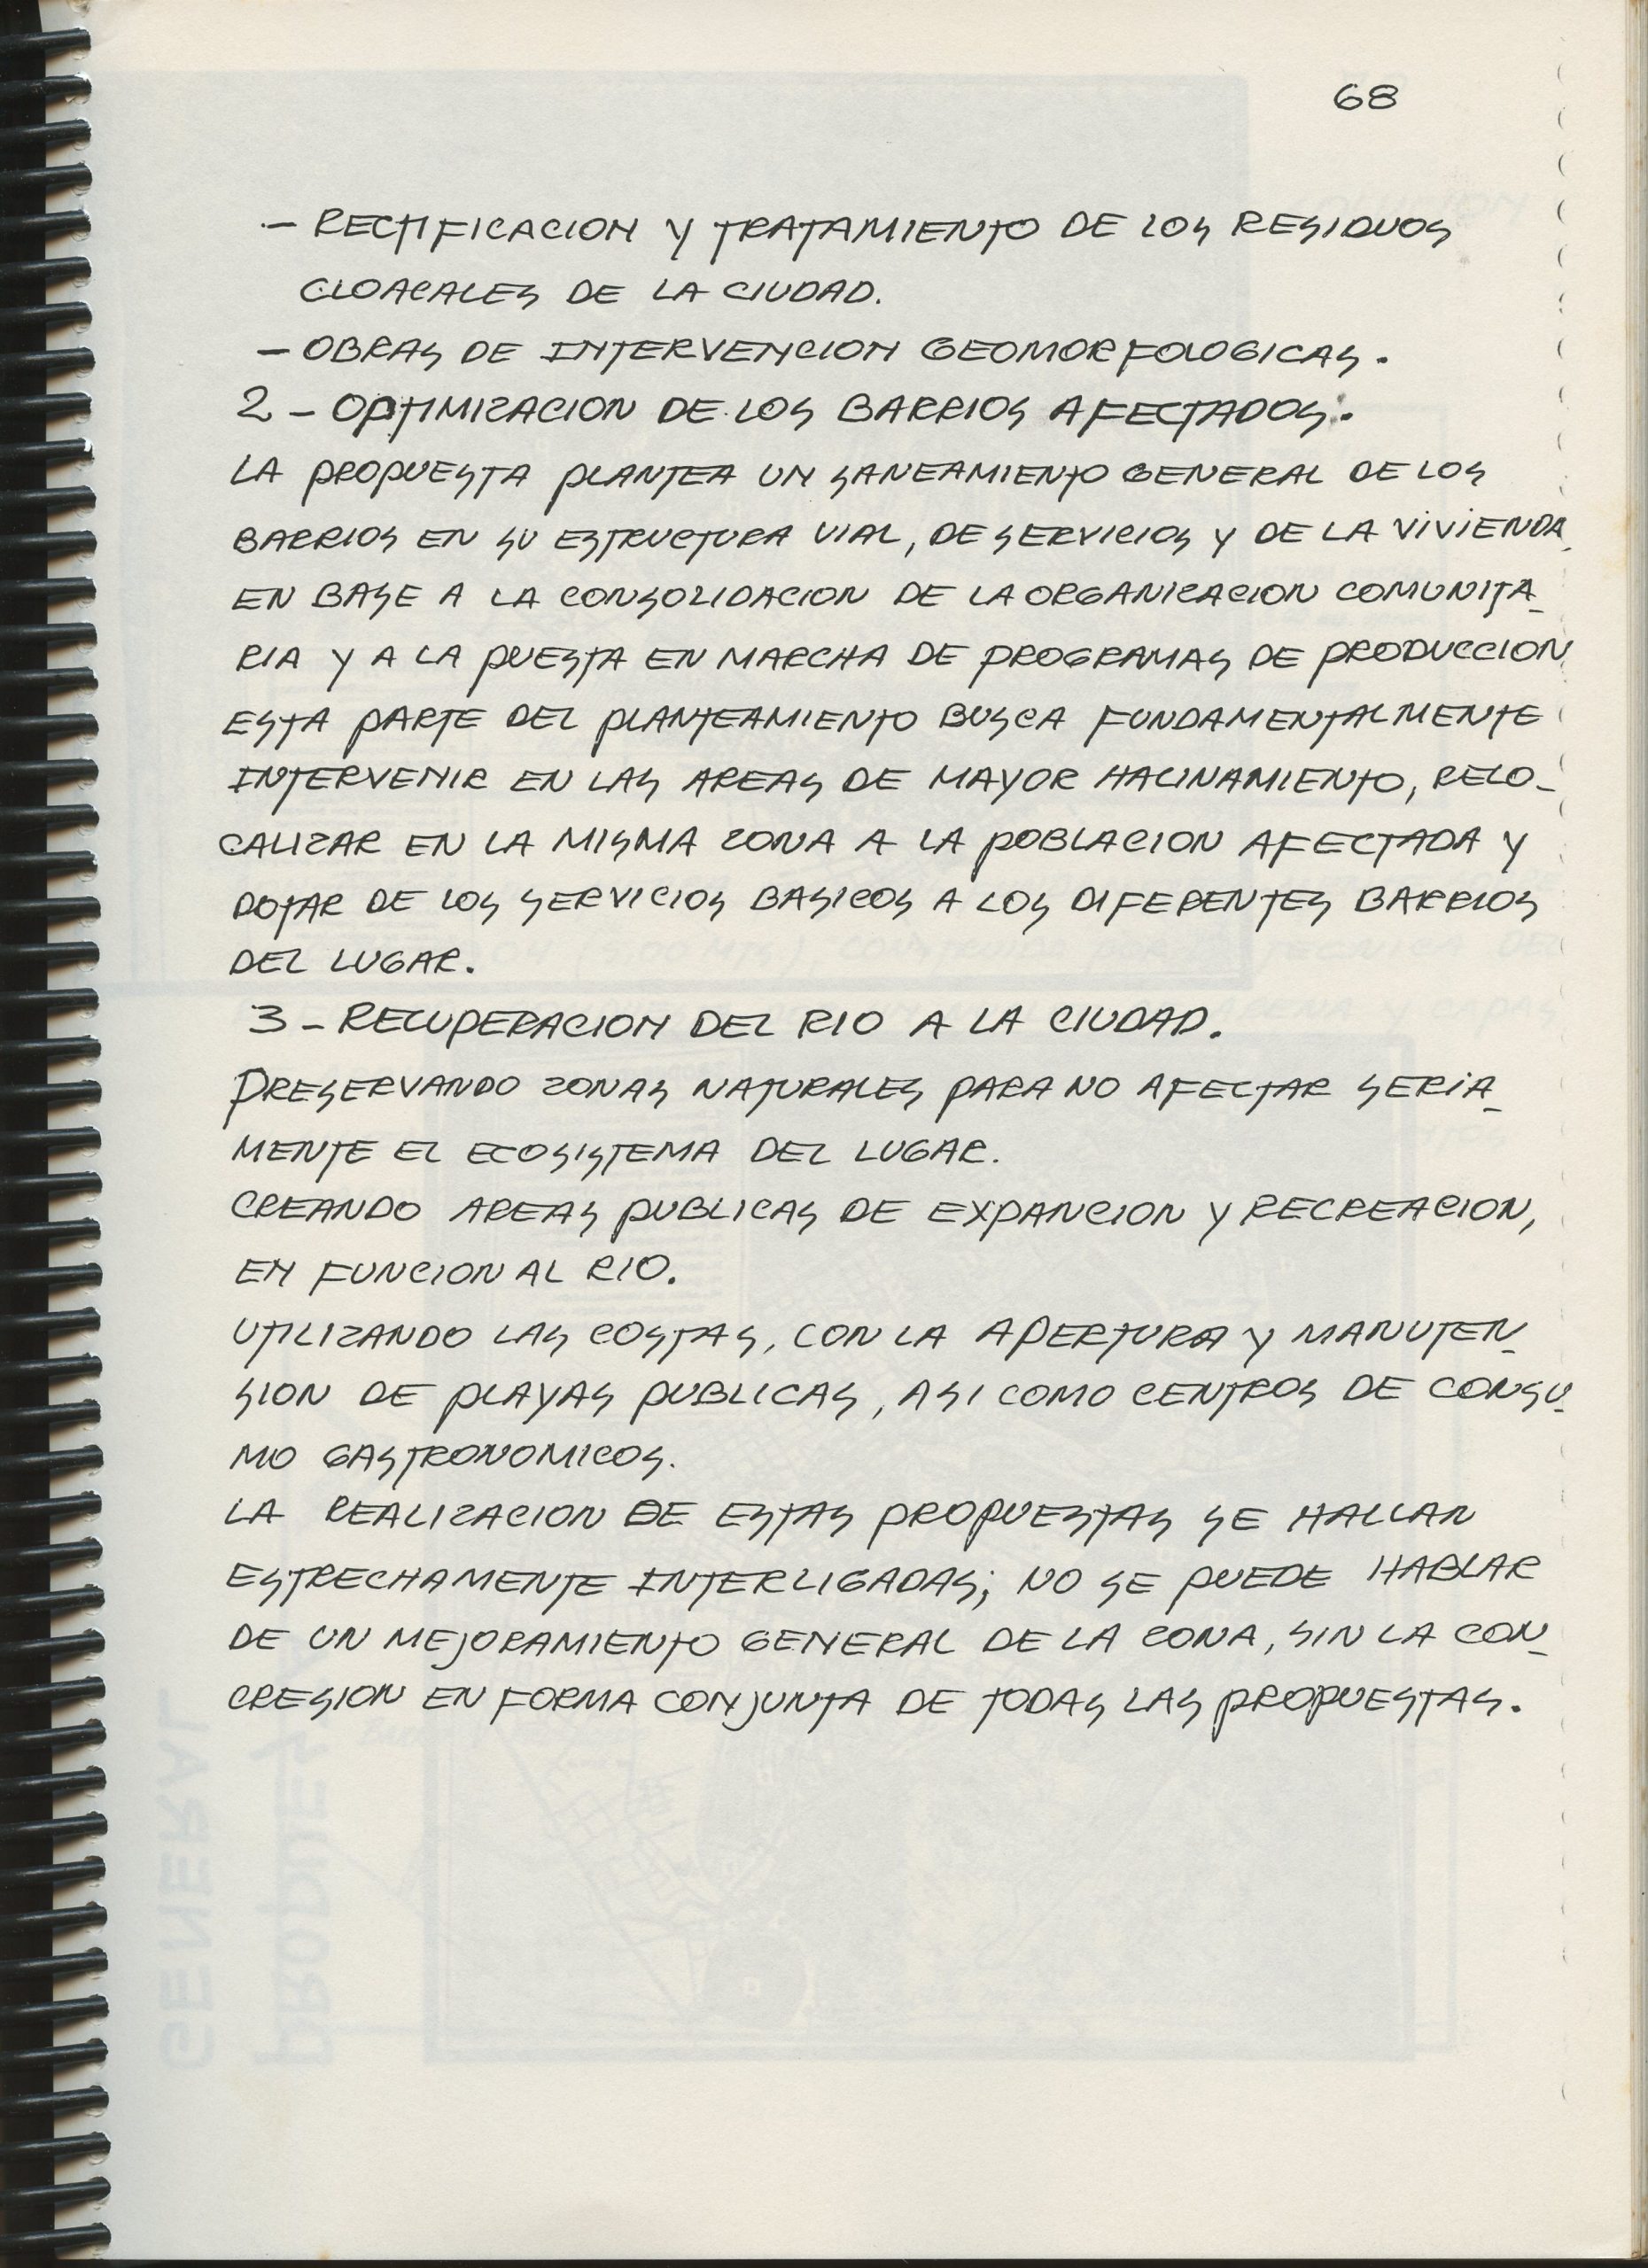 68
- RECTIFICACION Y TRATAMIENTO DE LOS RESIDUOS
CLOACALES DE LA CIUDAD.
- OBRAS DE INTERVENCION GEOMORFOLOGICAS.
2 - OPTIMIZACION DE LOS BARRIOS AFECTADOS.
LA PROPUESTA PLANTEA UN SANEAMIENTO GENERAL DE LOS
BARRIOS EN SU ESTRUCTURA VIAL, DE SERVICIOS Y DE LA VIVIENDA
EN BASE A LA CONSOLIDACION DE LA ORGANIZACION COMUNITA_
RIA Y A LA PUESTA EN MARCHA DE PROGRAMAS DE PRODUCCION
ESTA PARTE DEL PLANTEAMIENTO BUSCA FUNDAMENTALMENTE
INTERVENIR EN LAS AREAS DE MAYOR HACINAMIENTO, RELO_
CALIZAR EN LA MISMA ZONA A LA POBLACION AFECTADA Y
DOTAR DE LOS SERVICIOS BASICOS A LOS DIFERENTES BARRIOS
DEL LUGAR.
3 - RECUPERACION DEL RIO A LA CIUDAD.
PRESERVANDO ZONAS NATURALES PARA NO AFECTAR SERIA_
MENTE EL ECOSISTEMA DEL LUGAR.
CREANDO AREAS PUBLICAS DE EXPANCION Y RECREACION,
EN FUNCION AL RIO.
UTILIZANDO LAS COSTAS, CON LA APERTURA Y MANUTEN_
SION DE PLAYAS PUBLICAS, ASI COMO CENTROS DE CONSU_
MO GASTRONOMICOS.
LA REALIZACION DE ESTAS PROPUESTAS SE HALLAN
ESTRECHAMENTE INTERLIGADAS; NO SE PUEDE HABLAR
DE UN MEJORAMIENTO GENERAL DE LA ZONA, SIN LA CON_
CRESION EN FORMA CONJUNTA DE TODAS LAS PROPUESTAS.